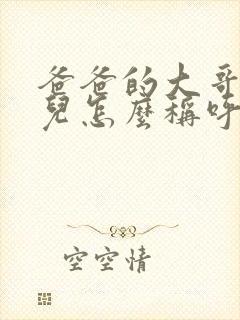 爸爸的大哥
兒怎麼稱呼
空空情